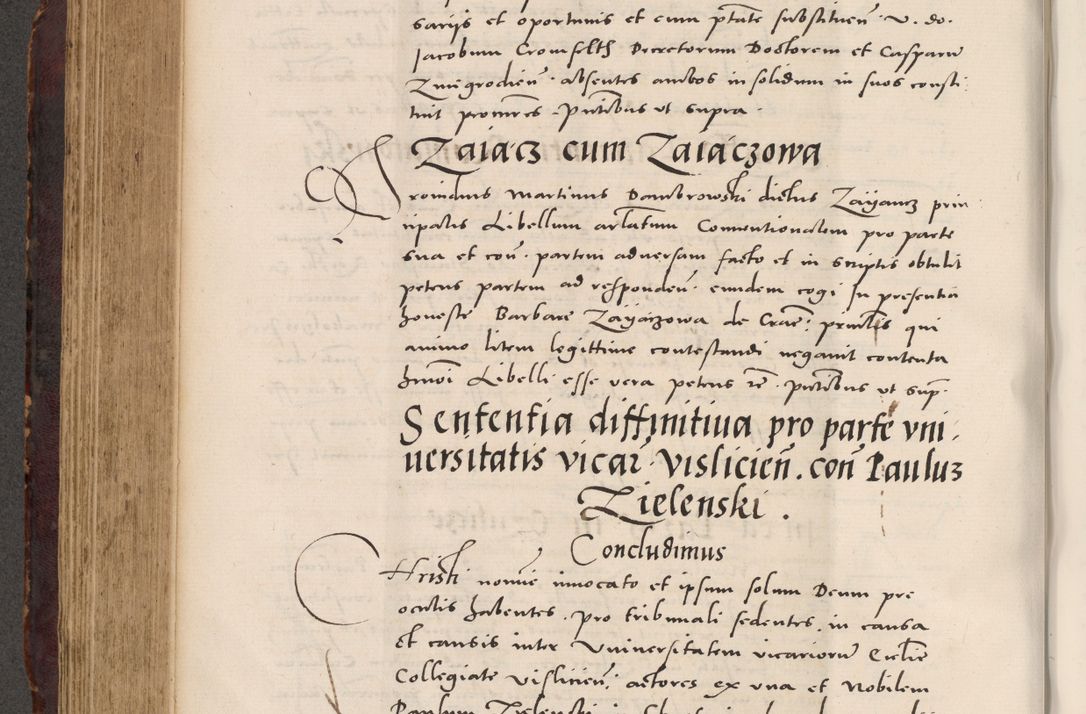 sarijs et oportunis et cum ptāte substituen̄. v. do.
Jacobum Cromfelth Decretorum Doctorem et Casparū
Zmigrodien̄. absentes ambos in solidum in suos consti
tuit procuratores. Pn̄tibus ut supra.
Zaiacz cum Zaiaczowa
Prouidus Martinus Dambrowski dictus Zayancz prin
cipalis Libellum artlatum Conuentionalem pro parte
sua et con̄. partem aduersam facto et in scriptis obtulit
petens partem ad responden̄. eiusdem cogi In presentia
honeste Barbare Zayaczowa de Crac. prin̄lis qui
animo litem legittime contestandi negauit contenta
hmōi Libelli esse vera petens rē. pn̄tibus ut sup.
Sententia diffinitiua pro parte vni
uersitatis vicar. vislicien̄. con̄ Pauluz
Zielenski.
Concludimus
CHristi nomīe inuocato et ipsum solum Deum pre
oculis habentes. pro tribunali sedentes. in causa
et causis inter Vniuersitatem vicariorū Ecclīe
Collegiate vislicien̄. actores ex vna et Nobilem
Paulum Zielenski